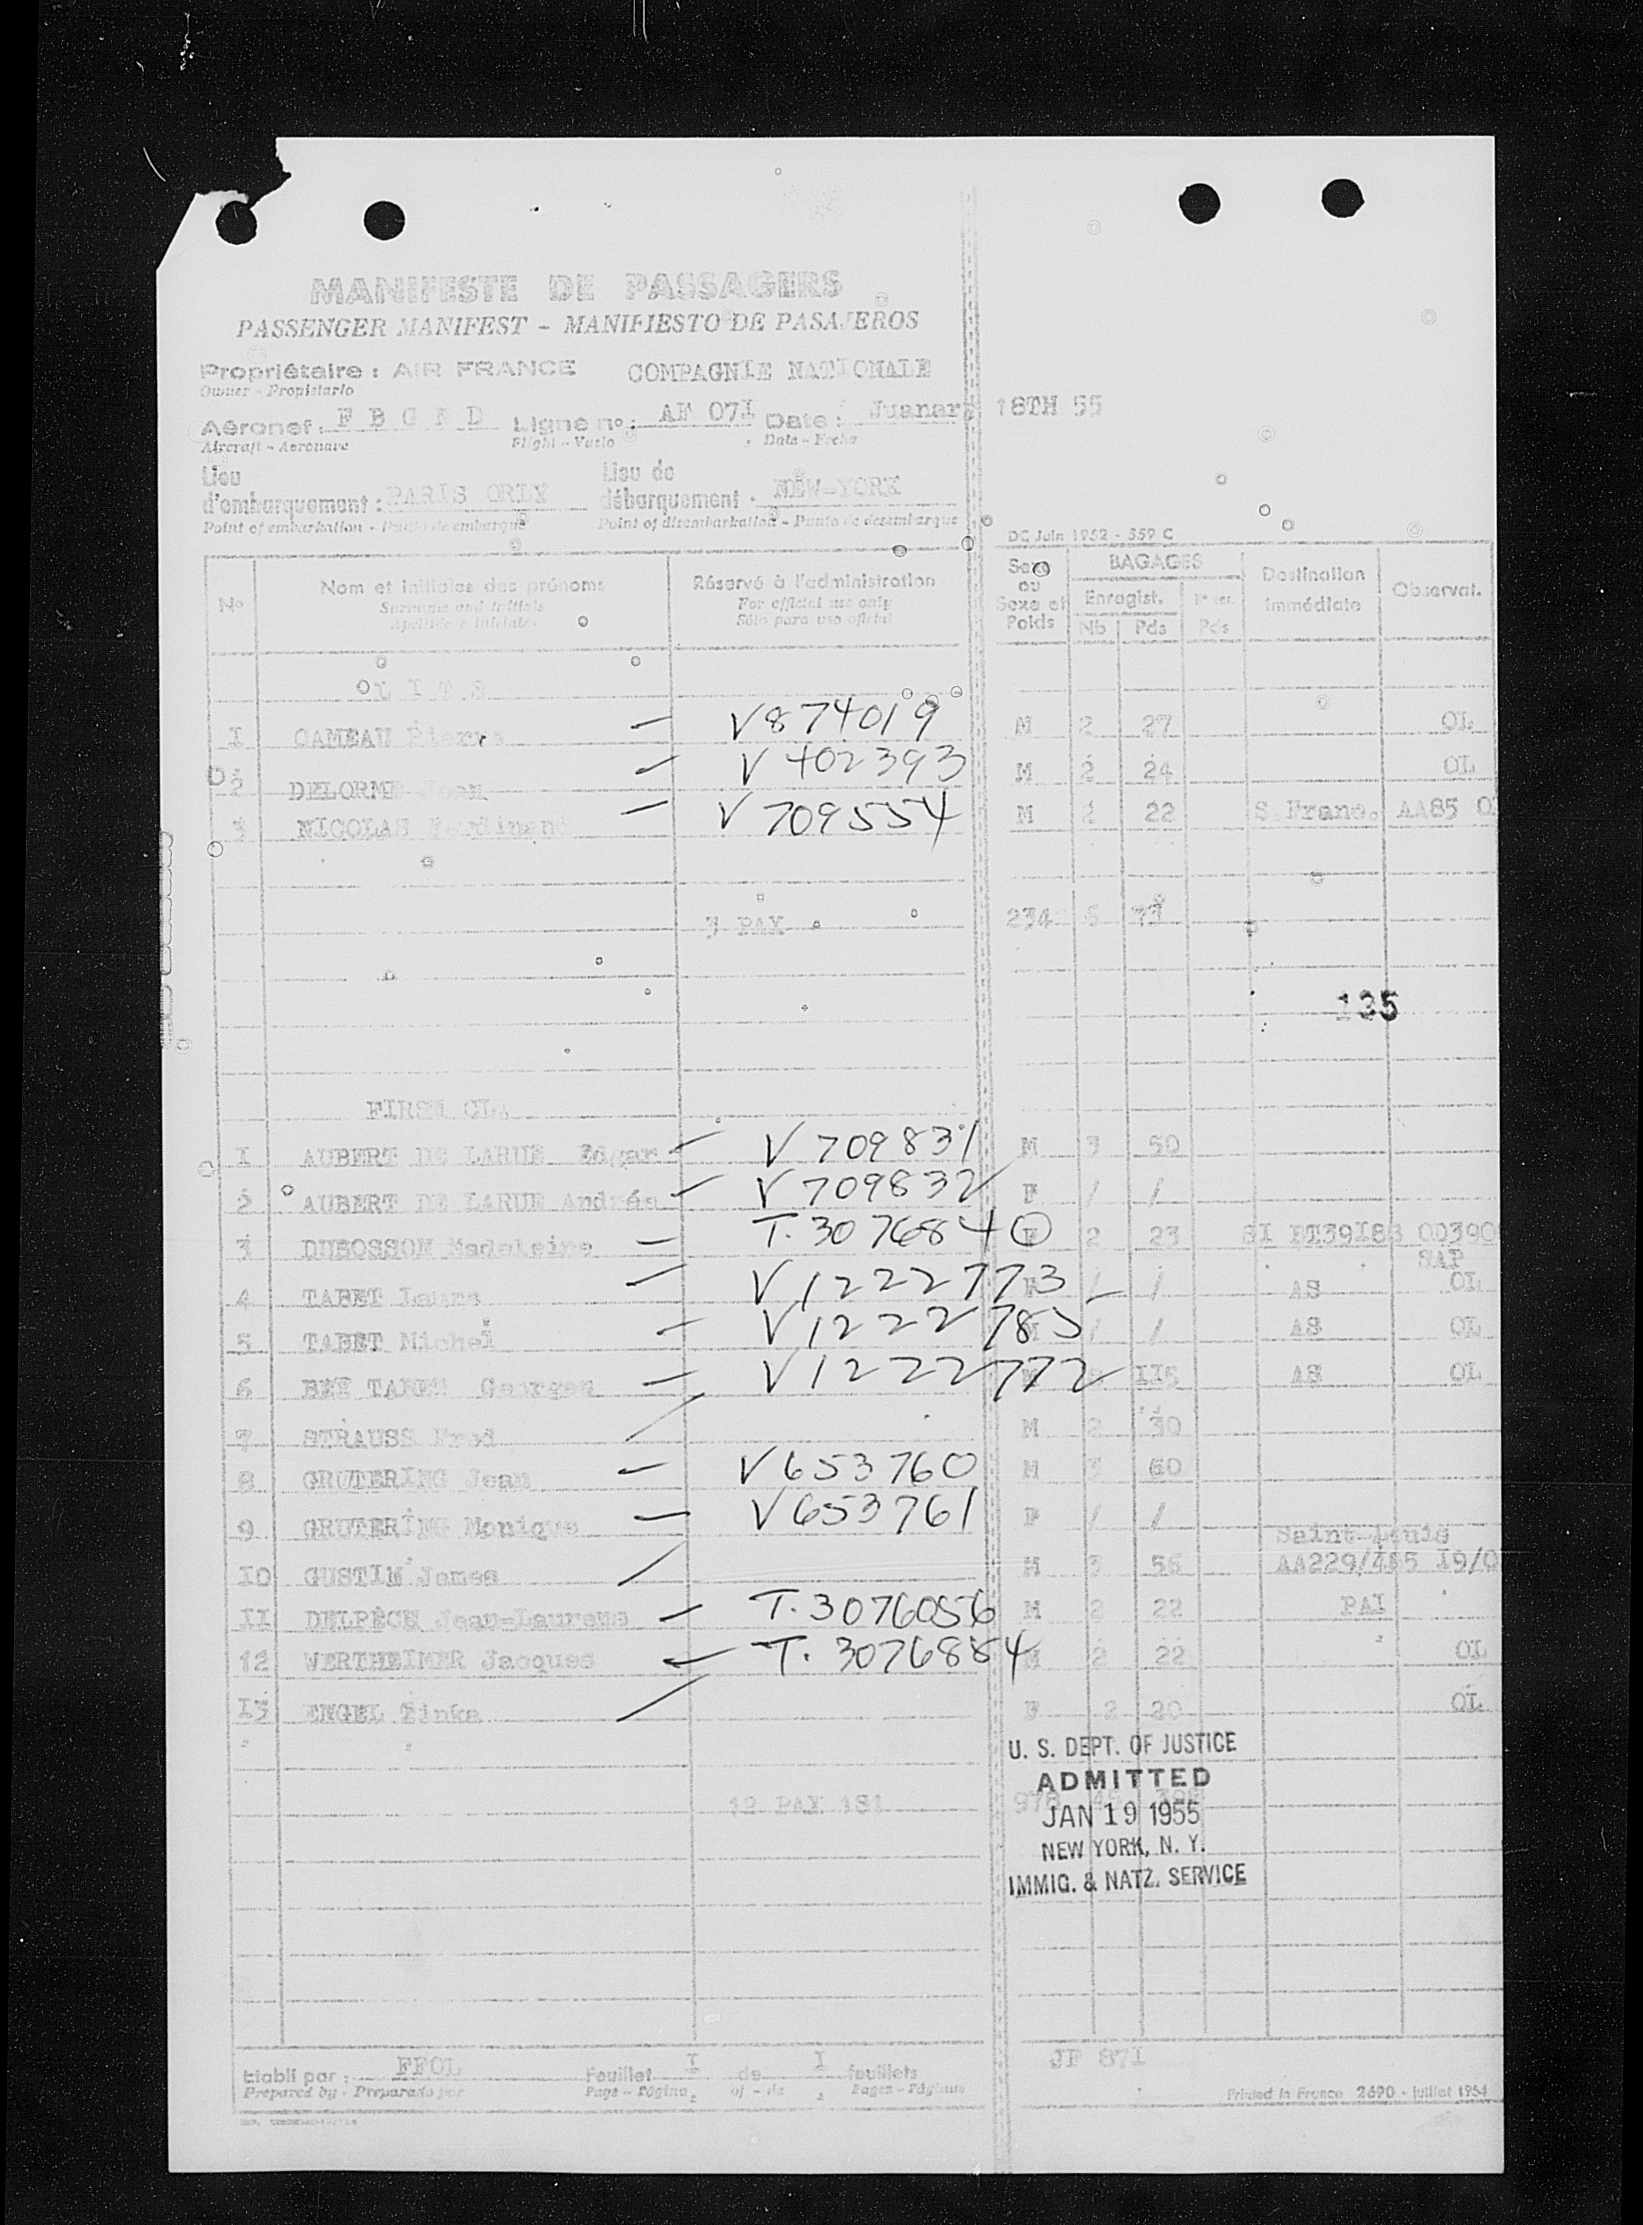 MANIFESTE DE PASSAGERS
PASSENGER MANIFEST - MANIFIESTO DE PASAJEROS
Propriétaire : AIR FRANCE COMPAGNIE NATIONALE
Owner - Propietario
Aéronef : F B G N D Ligne n° : AF 07I Date : Juanary 18TH 55
Aircraft - Aeronave Flight - Vuelo Date - Fecha
Lieu d'embarquement : PARIS ORLY Lieu de débarquement : NEW-YORK
Point of embarkation - Punto de embarque Point of disembarkation - Punto de desembarque
DC Juin 1952 - 559 C
No Nom et initiales des prénoms Réservé à l'administration Sexe ou Sexe et Poids BAGAGES Destination immédiate Observat.
Surname and initials For official use only Enregist.
Apellido e iniciales Sólo para uso oficial Nb Pds Pds
L I T S
I CAMEAU Pierre — V874019 M 2 27 OL
2 DELORME Jean — V 402393 M 2 24 OL
3 NICOLAS Ferdinand — V 709554 M 2 22 S.Franc. AA85
3 PAX 234 6 73
135
FIRST CLA
I AUBERT DE LARUE Edgar — V 709831 M 3 50
2 AUBERT DE LARUE Andrée — V 709832 F / /
3 DUBOSSON Madeleine — T. 3076884 F 2 23 SI ET39I88
SAP
4 TABET Laure — V1222773 F / / AS OL
5 TABET Michel — V1222785 M / / AS OL
6 BEY TABET Georges — V1222772 M II5 AS OL
7 STRAUSS Fred / M 2 30
8 GRUTERING Jean — V653760 M 3 60
9 GRUTERING Monique — V653761 F / /
Saint-Louis
IO GUSTIN James / M 3 56 AA229/465 I9/0
II DELPECH Jean-Laurens — T. 3076056 M 2 22 PAI
12 WERTHEIMER Jacques — T. 3076884 M 2 22 OL
I3 ENGEL / F 2 20 OL
U. S. DEPT. OF JUSTICE
ADMITTED
12 PAX 978
JAN 19 1955
NEW YORK, N. Y.
IMMIG. & NATZ. SERVICE
Etabli par : FFOL Feuillet I de I feuillets JP 87I
Prepared by - Preparado por Page - Página of - de Pages - Páginas Printed in France 2690 - juillet 1954